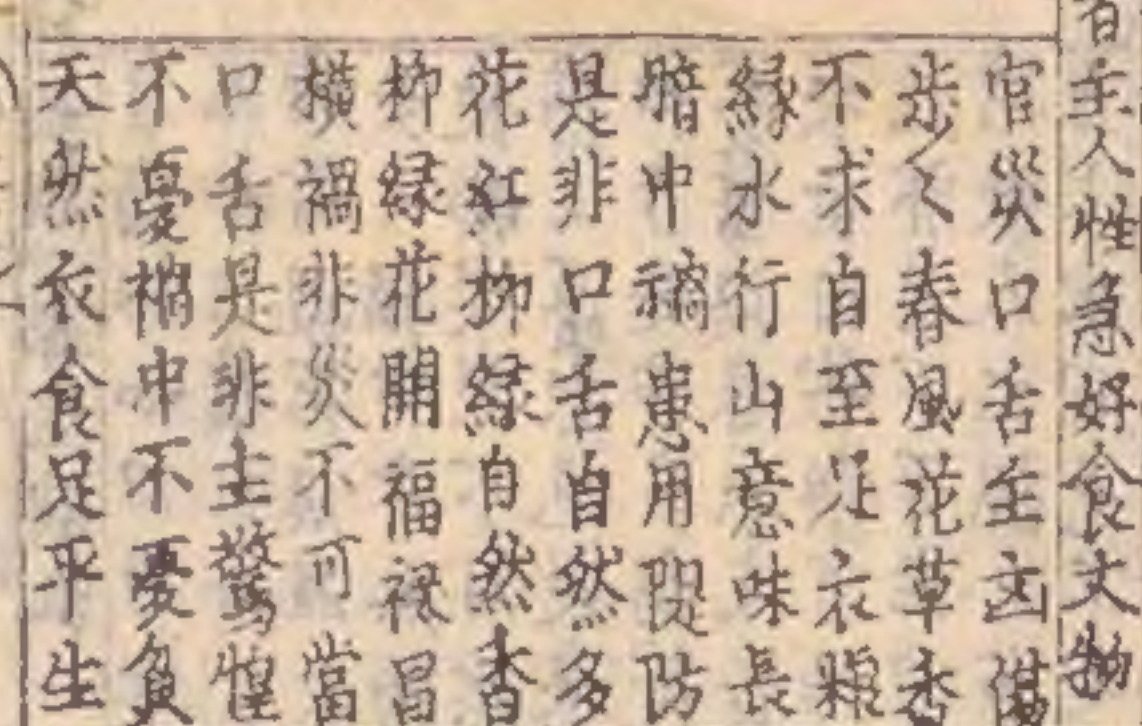 主人性急好食文物
官災口舌主凶
步々春風花草香
不求自至足衣粮
緑水行山意味長
暗中禍患用隄防
是非口舌自然多
花紅柳綠自然香
柳緑花開福祿昌
橫禍非災不可當
口舌是非主驚惶
不憂禍中不憂貧
天然衣食足平生